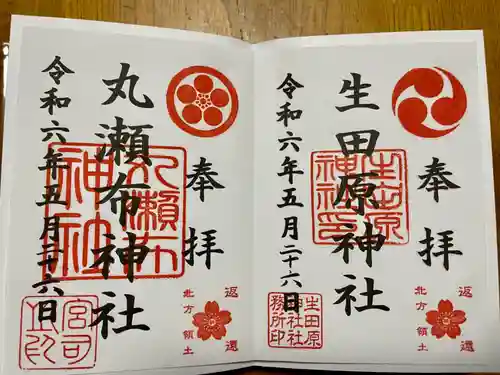 奉拝
北方領土
返還
生田原神社
生田原神社印
令和六年五月二十六日
生田原神社社務所印
奉拝
北方領土
返還
丸瀬布神社
丸瀬布神社
令和六年五月二十六日
宮司之印